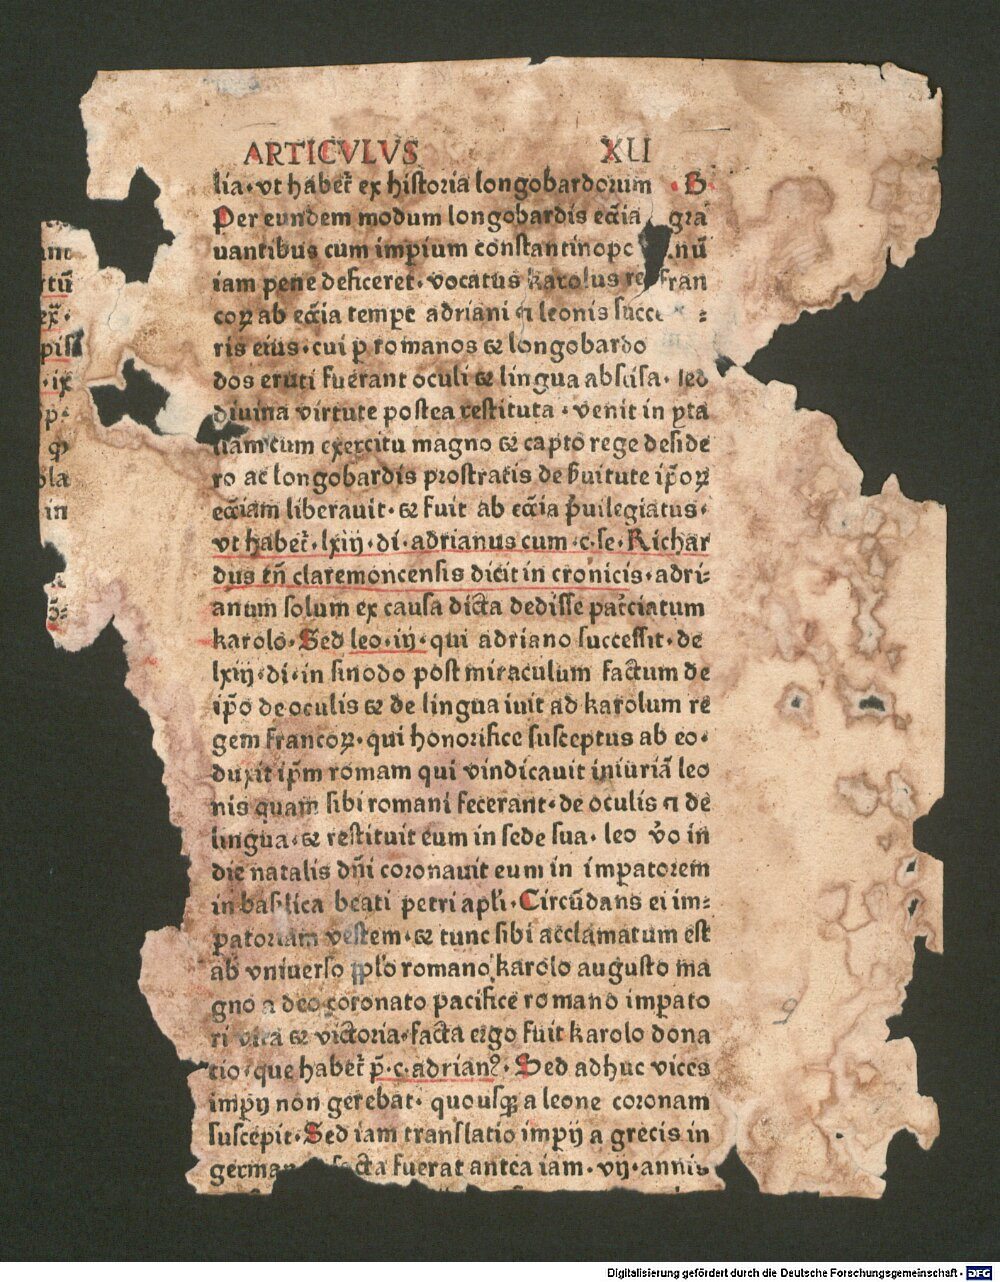 ARTICVLVS XLI
lia·vt habet̃ ex historia longobardorum · B
Per eundem modum longobardis ecc̃ia gra
uantibus cum imp̃ium constantinopo nũ
iam pene deficeret· vocatus karolus re fran
coꝝ ab ecc̃ia tempe adriani ⁊ leonis succe
ris eius·cui p̱ romanos ⁊ longobardo
dos eruti fuerant oculi ⁊ lingua abscisa· sed
diuina virtute postea restituta· venit in yta
liam cum exercitu magno ⁊ capto rege deside
ro ac longobardis prostratis de s̃uitute ip̃oꝝ
ecc̃iam liberauit· ⁊ fuit ab ecc̃ia p̃uilegiatus·
vt habet̃·lxiij·di·adrianus cum·c·se·Richar
dus tñ claremoncensis dicit in cronicis·adri⸗
anum solum ex causa dicta dedisse patc̃iatum
karolo·Sed leo·iij·qui adriano successit·de
lxiij·di·in sinodo post miraculum factum de
ip̃o de oculis ⁊ de lingua iuit ad karolum re
gem francoꝝ·qui honorifice susceptus ab eo·
duxit ip̃m romam qui vindicauit iniuriã leo
nis quam sibi romani fecerant·de oculis ⁊ de
lingua·⁊ restituit eum in sede sua· leo v̊o in
die natalis dñi coronauit eum in imp̱atorem
in basilica beati petri apl̃i·Circũdans ei im⸗
p̱atoriam vestem·⁊ tunc sibi acclamatum est
ab vniuerso pp̃lo romano karolo augusto ma
gno a deo coronato pacifice romano imp̱ato
ri vita ⁊ victoria·facta ergo fuit karolo dona
tio·que habet̃ p̃·c·adrianꝰ· Sed adhuc vices
imp̱ij non gerebat· quousqꝫ a leone coronam
suscepit·Sed iam translatio imp̱ij a grecis in
german facta fuerat antea iam·vij·annis
tũ
ex̃·
pis
·ix
p·
in
Digitalisierung gefördert durch die Deutsche Forschungsgemeinschaft - DFG